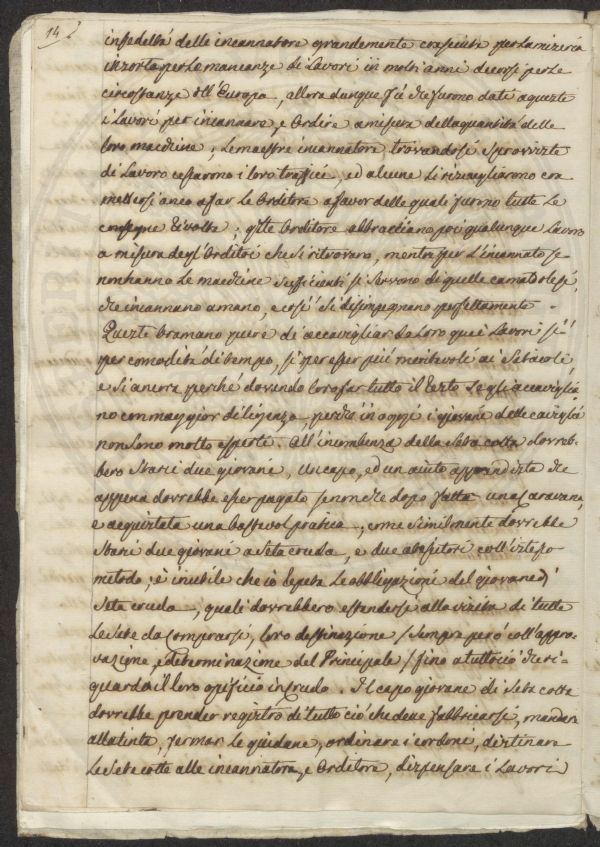 14
infedeltà delle incannatore grandemente cresciute per la miseria
inzorta per le mancanze di Lavori in molti anni decorsi per le
circostanze dell'Europa, allora dunque fù che furono date a queste
i Lavori per incannare, e Ordire a misura della quantità delle
loro macchine; le maestre incannatore trovandosi sprovviste
di Lavoro cessarono i loro traffici, ed alcune si risvegliarono era
mettersi anco a far le Orditore a favor delle quali furno tutte le
consegne rivolte; queste Orditore abbracciano poi qualunque Lavoro
a misura degl'Orditoi che si ritrovaro, mentre per l'incannato se
non hanno le macchine sufficienti si servono di quelle camatolesi,
che incannano a mano, e così si disimpegnano perfettamente.
Queste bramano pure di accavigliar da loro quei Lavori sì
per comodità di tempo, sì per esser più meritevoli ai Setaioli
e sì ancora perché dovendo loro far tutto il resto se gli accaviglia
no con maggior diligenza, perchè in oggi i giovani delle caviglia
non sono molto esperti. All'incumbenza della Seta cotta dovreb-
bero starci due giovani, un capo, ed un aiuto apprendista che
appena dovrebbe esser pagato se non che dopo fatta una Caravana,
e acquistata una bastevol pratica; come similmente dovrebbe
starci due giovani a seta cruda, e due a coll'istesso
metodo; è inutile che io repeta le obbligazioni del giovane di
seta cruda, quali dovrebbero estendersi alla visita di tutte
le Sete da Comprarsi, loro destinazione / sempre però coll'appro-
vazione, e determinazione del Principale / fino a tuttociò che ri-
guarda il loro opificio in Crudo. Il capo giovane di Seta cotta
dovrebbe prender registro di tutto ciò che deve fabbricarsi, mandare
alla tinta, fermar le guidane, ordinare i cordoni, destinare
le Sete cotte alle incannatore, e Orditore, dispensare i Lavori